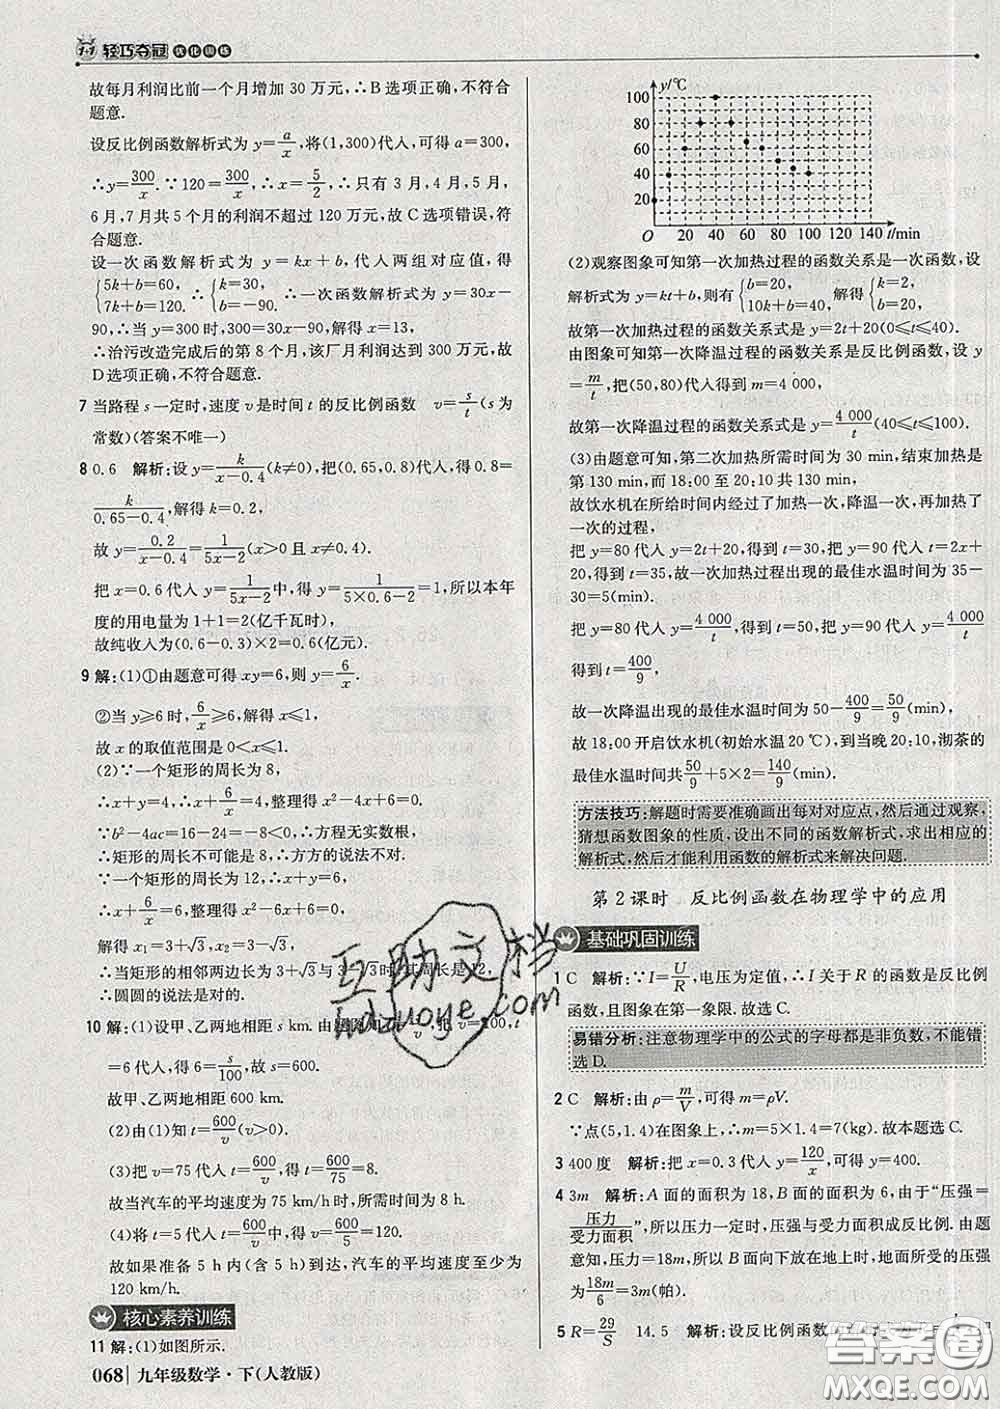 1+1 轻巧夺冠 优化训练
故每月利润比前一个月增加 30 万元,∴B 选项正确,不符合
题意.
设反比例函数解析式为 y=a/x,将(1,300)代人,可得 a=300,
∴y=300/x.∵120=300/x,∴x=5/2,∴只有 3 月,4 月,5 月,
6 月,7 月共 5 个月的利润不超过 120 万元,故 C 选项错误,符
合题意.
设一次函数解析式为 y=kx+b,代人两组对应值,得
{5k+b=60, 7k+b=120. ∴{k=30, b=-90. ∴一次函数解析式为 y=30x-
90,∴当 y=300 时,300=30x-90,解得 x=13,
∴治污改造完成后的第 8 个月,该厂月利润达到 300 万元,故
D 选项正确,不符合题意.
7 当路程 s 一定时,速度 v 是时间 t 的反比例函数 v=s/t(s 为
常数)(答案不唯一)
8 0.6 解析:设 y=k/(x-0.4)(k≠0),把(0.65,0.8)代人,得 0.8=
k/(0.65-0.4),解得 k=0.2,
故 y=0.2/(x-0.4)=1/(5x-2)(x>0 且 x≠0.4).
把 x=0.6 代人 y=1/(5x-2)中,得 y=1/(5×0.6-2)=1,所以本年
度的用电量为 1+1=2(亿千瓦时),
故纯收入为(0.6-0.3)×2=0.6(亿元).
9 解:(1)①由题意可得 xy=6,则 y=6/x.
②当 y≥6 时,6/x≥6,解得 x≤1,
故 x 的取值范围是 0<x≤1.
(2)∵一个矩形的周长为 8,
∴x+y=4,∴x+6/x=4,整理得 x²-4x+6=0.
∵b²-4ac=16-24=-8<0,∴方程无实数根,
∴矩形的周长不可能是 8,∴方方的说法不对.
∵一个矩形的周长为 12,
∴x+y=6,∴x+6/x=6,整理得 x²-6x+6=0,
解得 x₁=3+√3,x₂=3-√3.
∴当矩形的相邻两边长为 3+√3与 3-√3时,其周长是 12,
∴圆圆的说法是对的.
10 解:(1)设甲、乙两地相距 s km.
=6 代人,得 6=s/100,故 s=600.
故甲、乙两地相距 600 km.
(2)由(1)知 t=600/v(v>0).
(3)把 v=75 代人 t=600/v,得 t=600/75=8.
故当汽车的平均速度为 75 km/h 时,所需时间为 8 h.
(4)将 t=5 代人 t=600/v,得 v=600/5=120.
故如果准备 5 h 内(含 5 h)到达,汽车的平均速度至少为
120 km/h.
核心素养训练
11 解:(1)如图所示.
068 九年级数学·下(人教版)
y/℃
100
80
60
40
20
O 20 40 60 80 100 120 140 t/min
(2)观察图象可知第一次加热过程的函数关系是一次函数,设
解析式为 y=kt+b,则有{b=20, 10k+b=40. 解得{k=2, b=20.
故第一次加热过程的函数关系式是 y=2t+20(0≤t≤40).
由图象可知第一次降温过程的函数关系是反比例函数,设
y=m/t,把(50,80)代人得到 m=4 000,
故第一次降温过程的函数关系式是 y=4 000/t(40≤t≤100).
(3)由题意可知,第二次加热所需时间为 30 min,结束加热是
第 130 min,而 18:00 至 20:10 共 130 min,
故饮水机在所给时间内经过了加热一次,降温一次,再加热了
一次的过程,
把 y=80 代人 y=2t+20,得到 t=30,把 y=90 代人 y=2x+
20,得到 t=35,故一次加热过程出现的最佳水温时间为 35-
30=5(min).
把 y=80 代人 y=4 000/t,得到 t=50,把 y=90 代人 y=4 000/t,
得到 t=400/9,
故一次降温出现的最佳水温时间为 50-400/9=50/9(min),
故 18:00 开启饮水机(初始水温 20 ℃),到当晚 20:10,沏茶的
最佳水温时间共 50/9+5×2=140/9(min).
方法技巧:解题时需要准确画出每对对应点,然后通过观察,
猜想函数图象的性质,设出不同的函数解析式,求出相应的
解析式,然后才能利用函数的解析式来解决问题.
第 2 课时 反比例函数在物理学中的应用
基础巩固训练
1 C 解析:∵I=U/R,电压为定值,∴I 关于 R 的函数是反比例
函数,且图象在第一象限.故选 C.
易错分析:注意物理学中的公式的字母都是非负数,不能错
选 D.
2 C 解析:由 ρ=m/V,可得 m=ρV.
∵点(5,1.4)在图象上,∴m=5×1.4=7(kg).故本题选 C.
3 400 度 解析:把 x=0.3 代人 y=120/x,可得 y=400.
4 3m 解析:A 面的面积为 18,B 面的面积为 6,由于“压强=
压力/受力面积”,所以压力一定时,压强与受力面积成反比例.由题
意知,压力=18m,所以 B 面向下放在地上时,地面所受的压强
为 18m/6=3m(帕).
5 R=29/S 14.5 解析:设反比例函数
互助文档
hdzuoye.com
答案圈
MXQE.COM